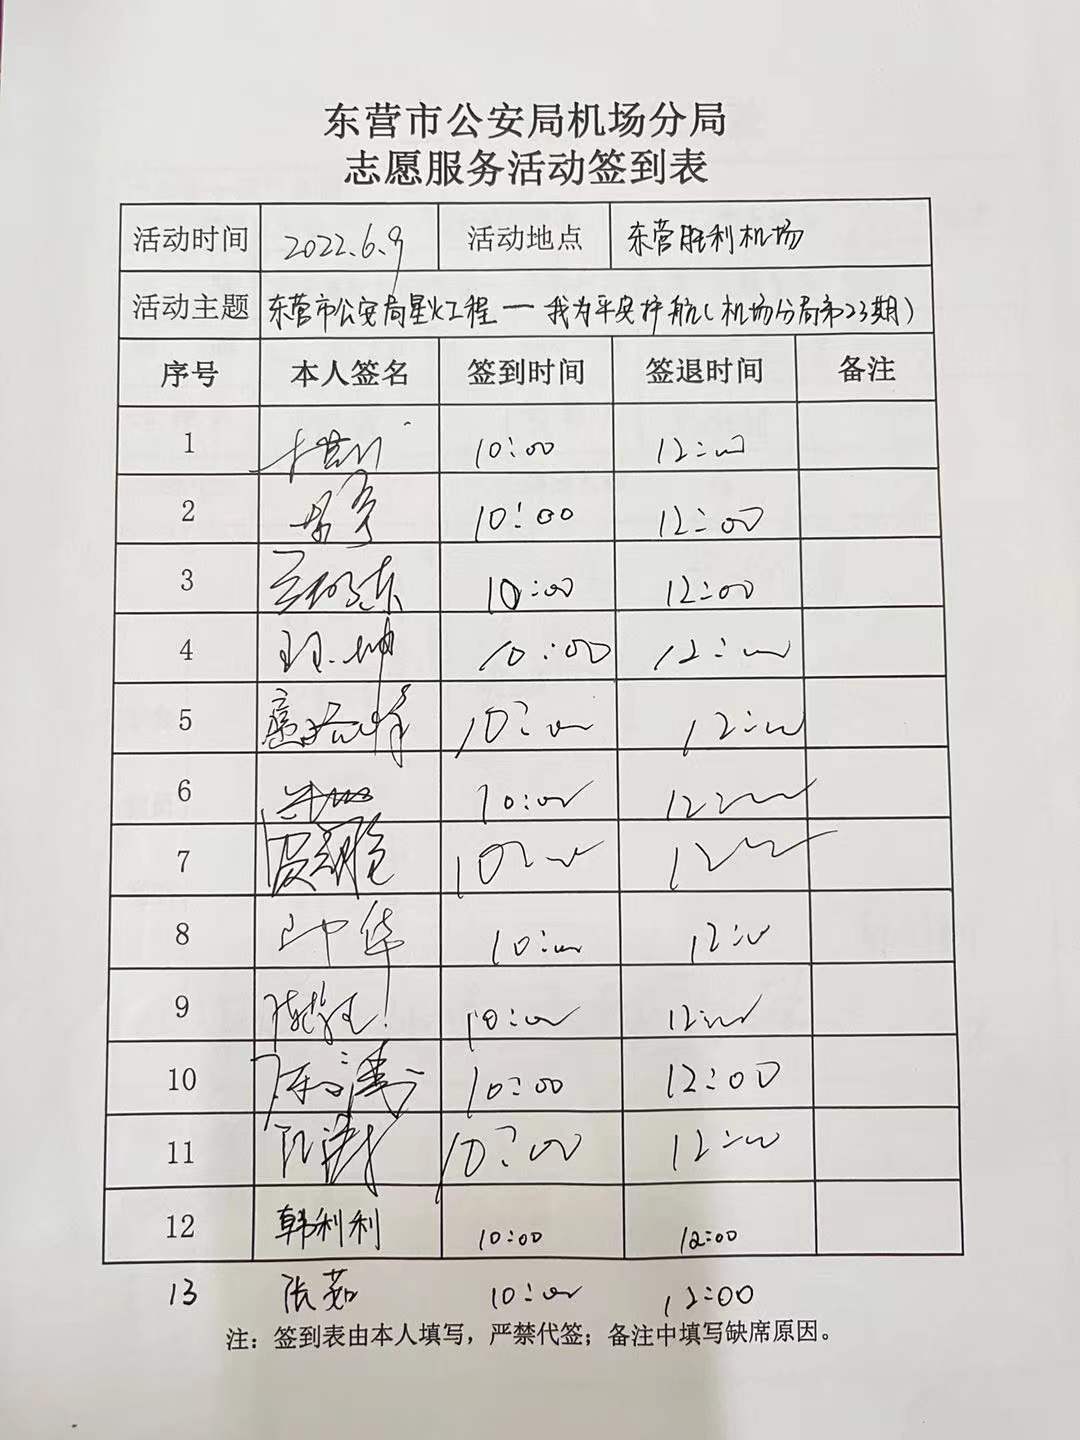 东营市公安局机场分局
志愿服务活动签到表
活动时间 2022.6.9 活动地点 东营胜利机场
活动主题 东营市公安局星火工程一我为平安护航(机场分局第23期)
序号 本人签名 签到时间 签退时间 备注
1 10:00 12:00
2 10:00 12:00
3 10:00 12:00
4 10:00 12:00
5 10:00 12:00
6 10:00 12:00
7 10:00 12:00
8 10:00 12:00
9 10:00 12:00
10 10:00 12:00
11 10:00 12:00
12 韩利利 10:00 12:00
13 张茹 10:00 12:00
注：签到表由本人填写，严禁代签；备注中填写缺席原因。